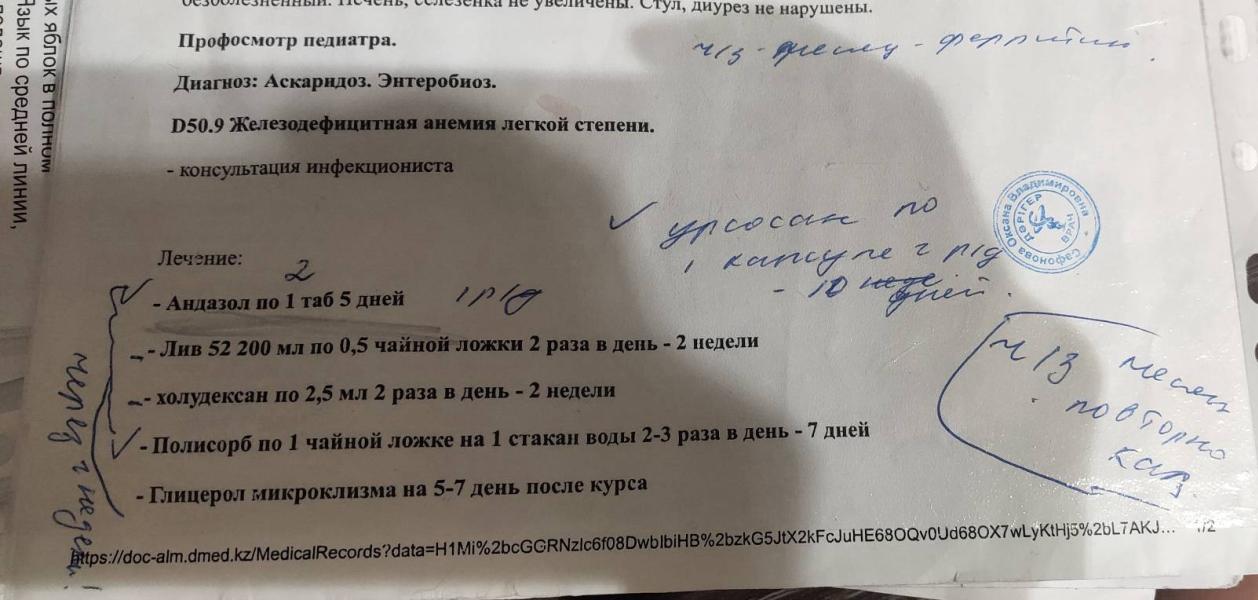 безболезненный. Печень, селезенка не увеличены. Стул, диурез не нарушены.
Профосмотр педиатра.
ч/з - - ферритин
Диагноз: Аскаридоз. Энтеробиоз.
D50.9 Железодефицитная анемия легкой степени.
- консультация инфекциониста
урсосан по
1 капсуле 2 р/д
- 10 дней.
Сафонова Оксана Владимировна
ДӘРІГЕР ВРАЧ
Лечение:
2
- Андазол по 1 таб 5 дней 1 р/д
- Лив 52 200 мл по 0,5 чайной ложки 2 раза в день - 2 недели
- холудексан по 2,5 мл 2 раза в день - 2 недели
- Полисорб по 1 чайной ложке на 1 стакан воды 2-3 раза в день - 7 дней
- Глицерол микроклизма на 5-7 день после курса
ч/з месяц
повторно
кап
через 2 недели!
https://doc-alm.dmed.kz/MedicalRecords?data=H1Mi%2bcGGRNzIc6f08DwbIbiHB%2bzkG5JtX2kFcJuHE68OQv0Ud68OX7wLyKtHj5%2bL7AKJ... 1/2
ых яблок в полном
Язык по средней линии,